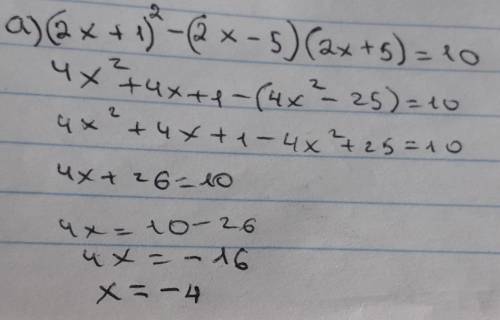 a) (2x+1)²-(2x-5)(2x+5)=10
4x²+4x+1-(4x²-25)=10
4x²+4x+1-4x²+25=10
4x+26=10
4x=10-26
4x=-16
x=-4